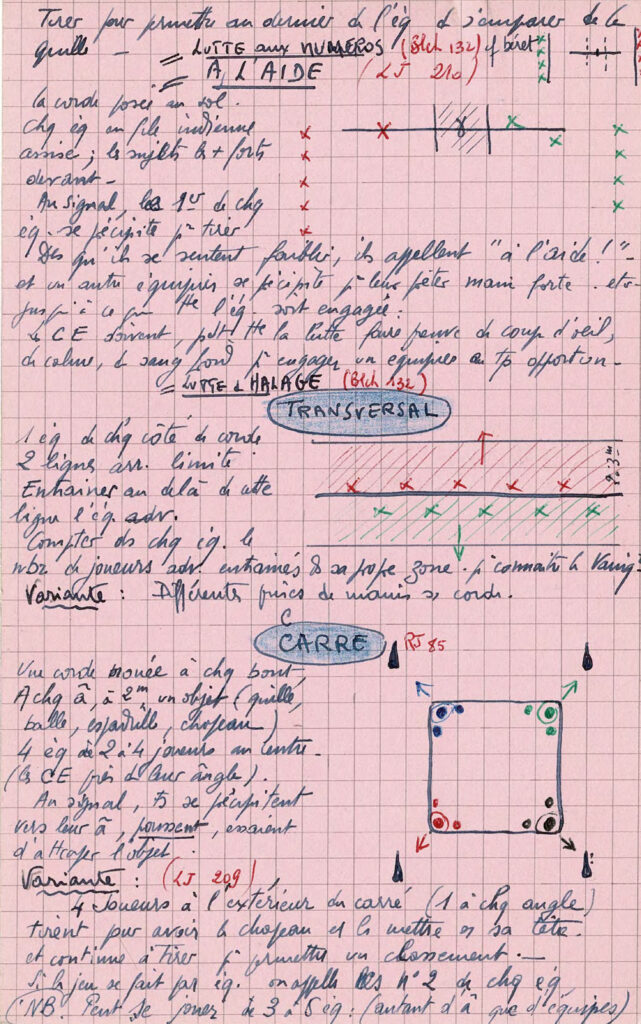 Tirer pour permettre au dernier de l'éq de s'emparer de la
quille —
= LUTTE aux NUMEROS (Blch 132) cf béret
= A L'AIDE (LJ 210)
la corde posée au sol.
Chq éq en file indienne
assise ; les sujets les + forts
devant -
Au signal, le 1er de chq
éq. se précipite pr tirer
Dès qu'ils se sentent faiblir, ils appellent "à l'aide !" -
et un autre équipier se précipite pr leur prêter main forte. etc-
jusqu'à ce que tte l'éq soit engagée :
CE doivent, pdt tte la lutte faire preuve de coup d'oeil,
de calme, de sang froid pr engager un équipier au tps opportun -
= LUTTE d HALAGE (Blch 132)
TRANSVERSAL
1 éq de chq côté de corde
2 lignes arr. limité
Entrainer au delà de cette
ligne l'éq. adv.
2 à 3 m
Compter ds chq éq. le
nbr de joueurs adv. entrainés ds sa propre zone. pr connaître le Vainq
Variante : Différentes prises de mains se corde.
C
CARRE RJ 85
Une corde nouée à chq bout
A chq â, à 2m un objet (quille,
balle, espadrille, chapeau) -
4 éq de 2 à 4 joueurs au centre -
(les CE près de leur ângle).
Au signal, ts se précipitent
vers leur â, poussent, essaient
d'attraper l'objet -
Variante : (LJ 209)
4 Joueurs à l'extérieur du carré (1 à chq angle)
tirent pour avoir le chapeau et le mettre sa tête -
et continue à tirer pr permettre un classement. —
Si le jeu se fait par éq. on appelle les n° 2 de chq éq
(NB. Peut se jouer de 3 à 5 éq : (autant d'â que d'équipes)